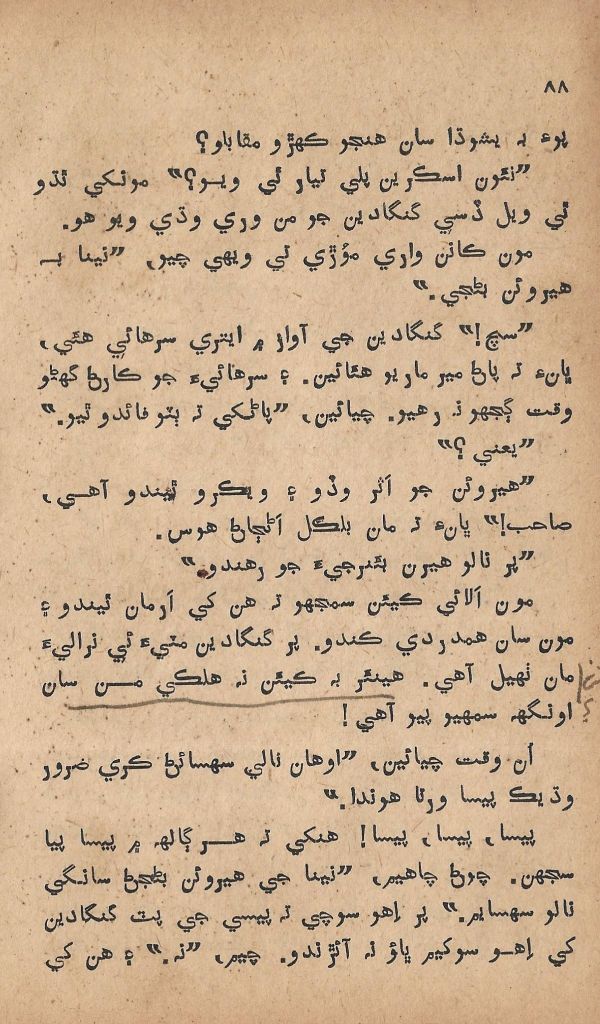 ٨٨
پوءِ بہ يشوڌا سان هنجو ڪهڙو مقابلو؟
”نئون اسڪرين پلي تيار ٿي ويو؟“ مونکي ٿڌو
ٿي ويل ڏسي گنگادين جو من وري وڌي ويو هو.
مون ڪاٺن واري مؤڙي تي ويهي چيو، ”نينا بہ
هيروئن بڻجي.“
”سچ!“ گنگادين جي آواز ۾ ايتري سرهائي هئي،
ڀانءِ تہ پاڻ مير ماريو هئائين. ۽ سرهائيءَ جو ڪارڻ گهڻو
وقت ڳجهو نہ رهيو. چيائين، ”پاڻکي تہ ٻٽو فائدو ٿيو.“
”يعني؟“
”هيروئن جو اَثر وڏو ۽ ويڪرو ٿيندو آهي،
صاحب!“ ڀانءِ تہ مان بلڪل اَڻڄاڻ هوس.
”پر نالو هيرن بئنرجيءَ جو رهندو.“
مون اَلائي ڪيئن سمجهو تہ هن کي اَرمان ٿيندو ۽
مون سان همدردي ڪندو. پر گنگادين مٽيءَ ئي نراليءَ
مان ٺهيل آهي. هينئر بہ ڪيئن نہ هلڪي من سان
اونگهہ سمهيو پيو آهي!
اُن وقت چيائين، ”اوهان نالي سهسائڻ ڪري ضرور
وڌيڪ پيسا ورتا هوندا.“
پيسا، پيسا، پيسا! هنکي تہ هر ڳالهہ ۾ پيسا پيا
سجهن. چوڻ چاهيم، ”نينا جي هيروئن بڻجڻ سانگي
نالو سهسايم.“ پر اِهو سوچي تہ پيسي جي پٽ گنگادين
کي اِهو سوکيم ڀاؤ نہ آئڙندو. چيم، ”نہ.“ ۽ هن کي